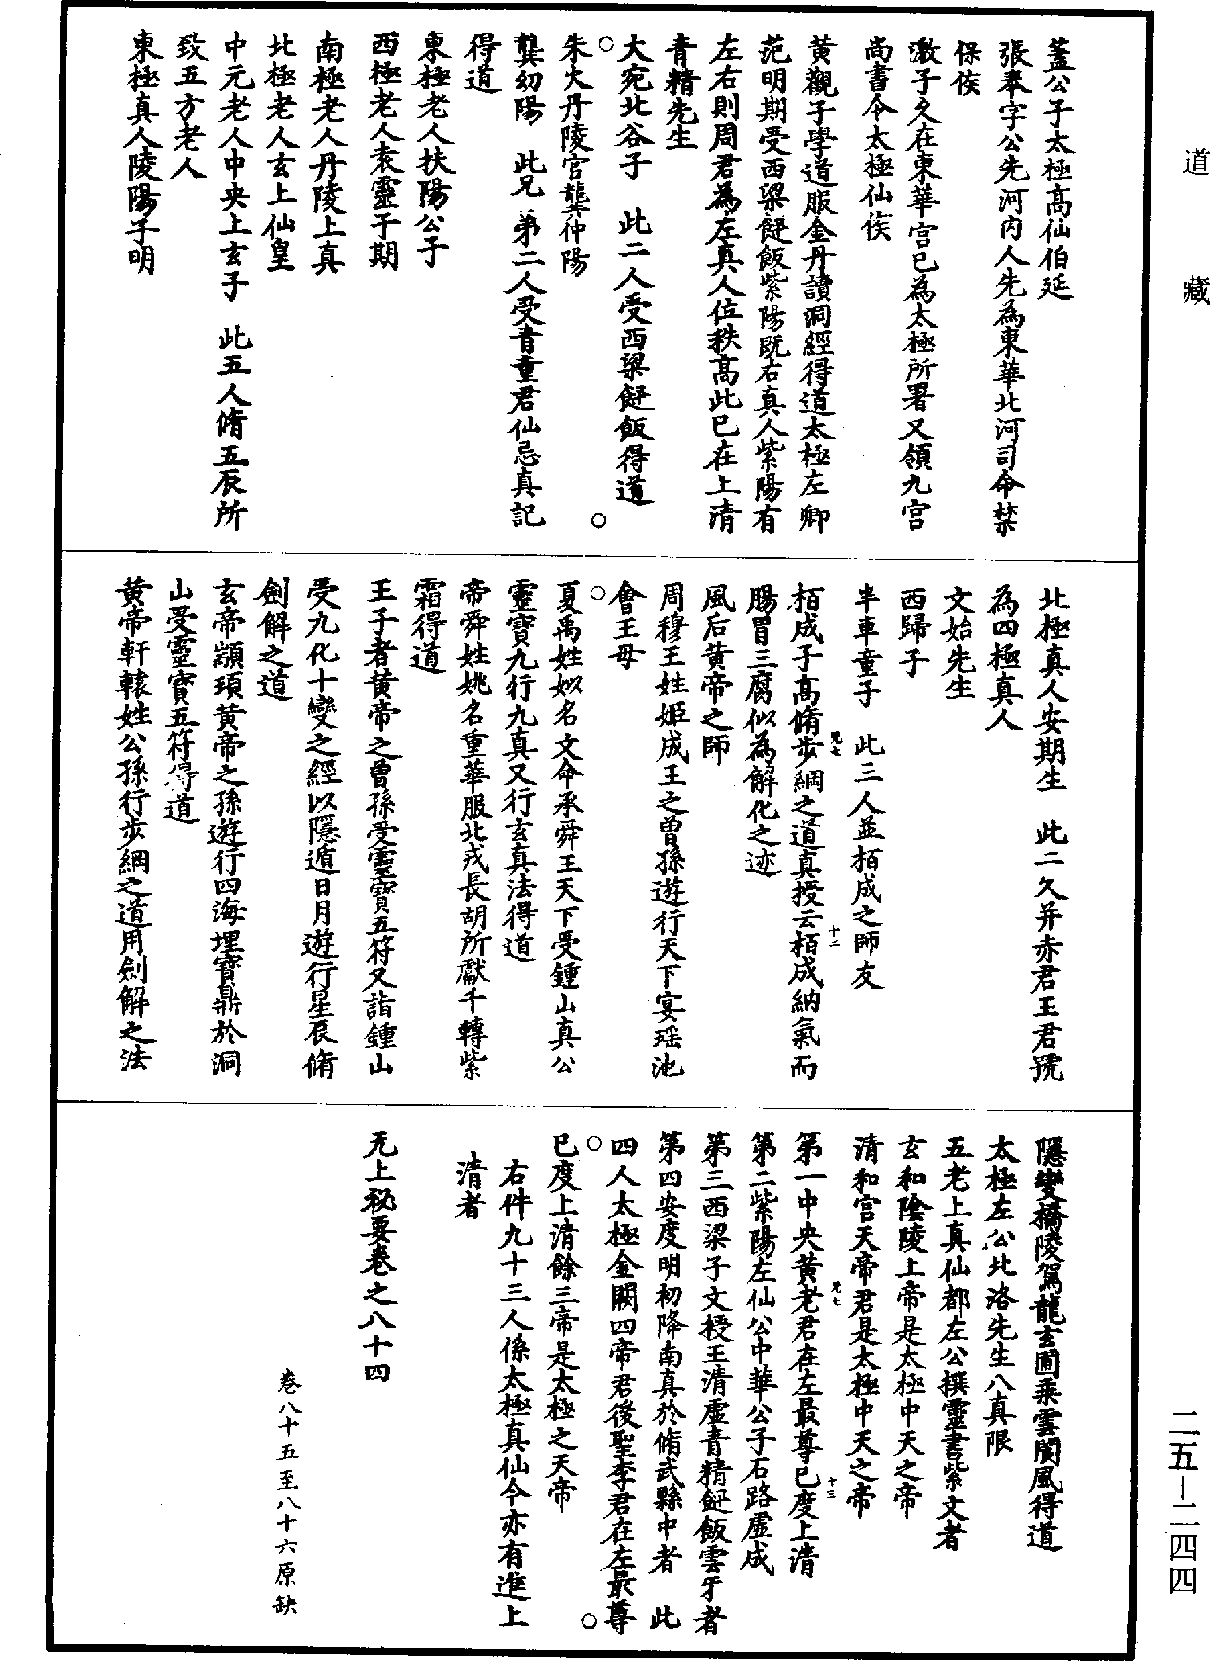 道藏
蓋公子太極高仙伯延
張奉字公先河內人先為東華北河司命禁
保侯
激子久在東華宮已為太極所署又領九宮
尚書令太極仙侯
黃觀子學道服金丹讀洞經得道太極左卿
范明期受西梁䭀飯紫陽既右真人紫陽有
左右則周君為左真人位秩高此已在上清
青精先生
大宛北谷子　此二人受西梁䭀飯得道
朱火丹陵宮龔仲陽
龔幼陽　此兄弟二人受青童君仙忌真記
得道
東極老人扶陽公子
西極老人袁靈子期
南極老人丹陵上真
北極老人玄上仙皇
中元老人中央上玄子　此五人脩五辰所
致五方老人
東極真人陵陽子明
北極真人安期生　此二久并赤君王君號
為四極真人
文始先生
西歸子
羊車童子　此三人並栢成之師友
栢成子高脩步綱之道真授云栢成納氣而
腸胃三腐似為解化之迹
風后黃帝之師
周穆王姓姬成王之曾孫遊行天下宴瑶池
會王母
夏禹姓姒名文命承舜王天下受鍾山真公
靈寶九行九真又行玄真法得道
帝舜姓姚名重華服北戎長胡所獻千轉紫
霜得道
王子者黃帝之曾孫受靈寶五符又詣鍾山
受九化十變之經以隱遁日月遊行星辰脩
劍解之道
玄帝顓頊黃帝之孫遊行四海埋寶鼎於洞
山受靈寶五符得道
黃帝軒轅姓公孫行步綱之道用劍解之法
隱變橋陵駕龍玄圃乘雲閬風得道
太極左公北洛先生八真限
五老上真仙都左公撰靈書紫文者
玄和陰陵上帝是太極中天之帝
清和宮天帝君是太極中天之帝
第一中央黃老君在左最尊已度上清
第二紫陽左仙公中華公子石路虛成
第三西梁子文授王清虛青精䭀飯雲牙者
第四安度明初降南真於脩武縣中者　此
四人太極金闕四帝君後聖李君在左最尊
已度上清餘三帝是太極之天帝
右件九十三人係太極真仙今亦有進上
清者
无上秘要卷之八十四
卷八十五至八十六原缺
二五－二四四